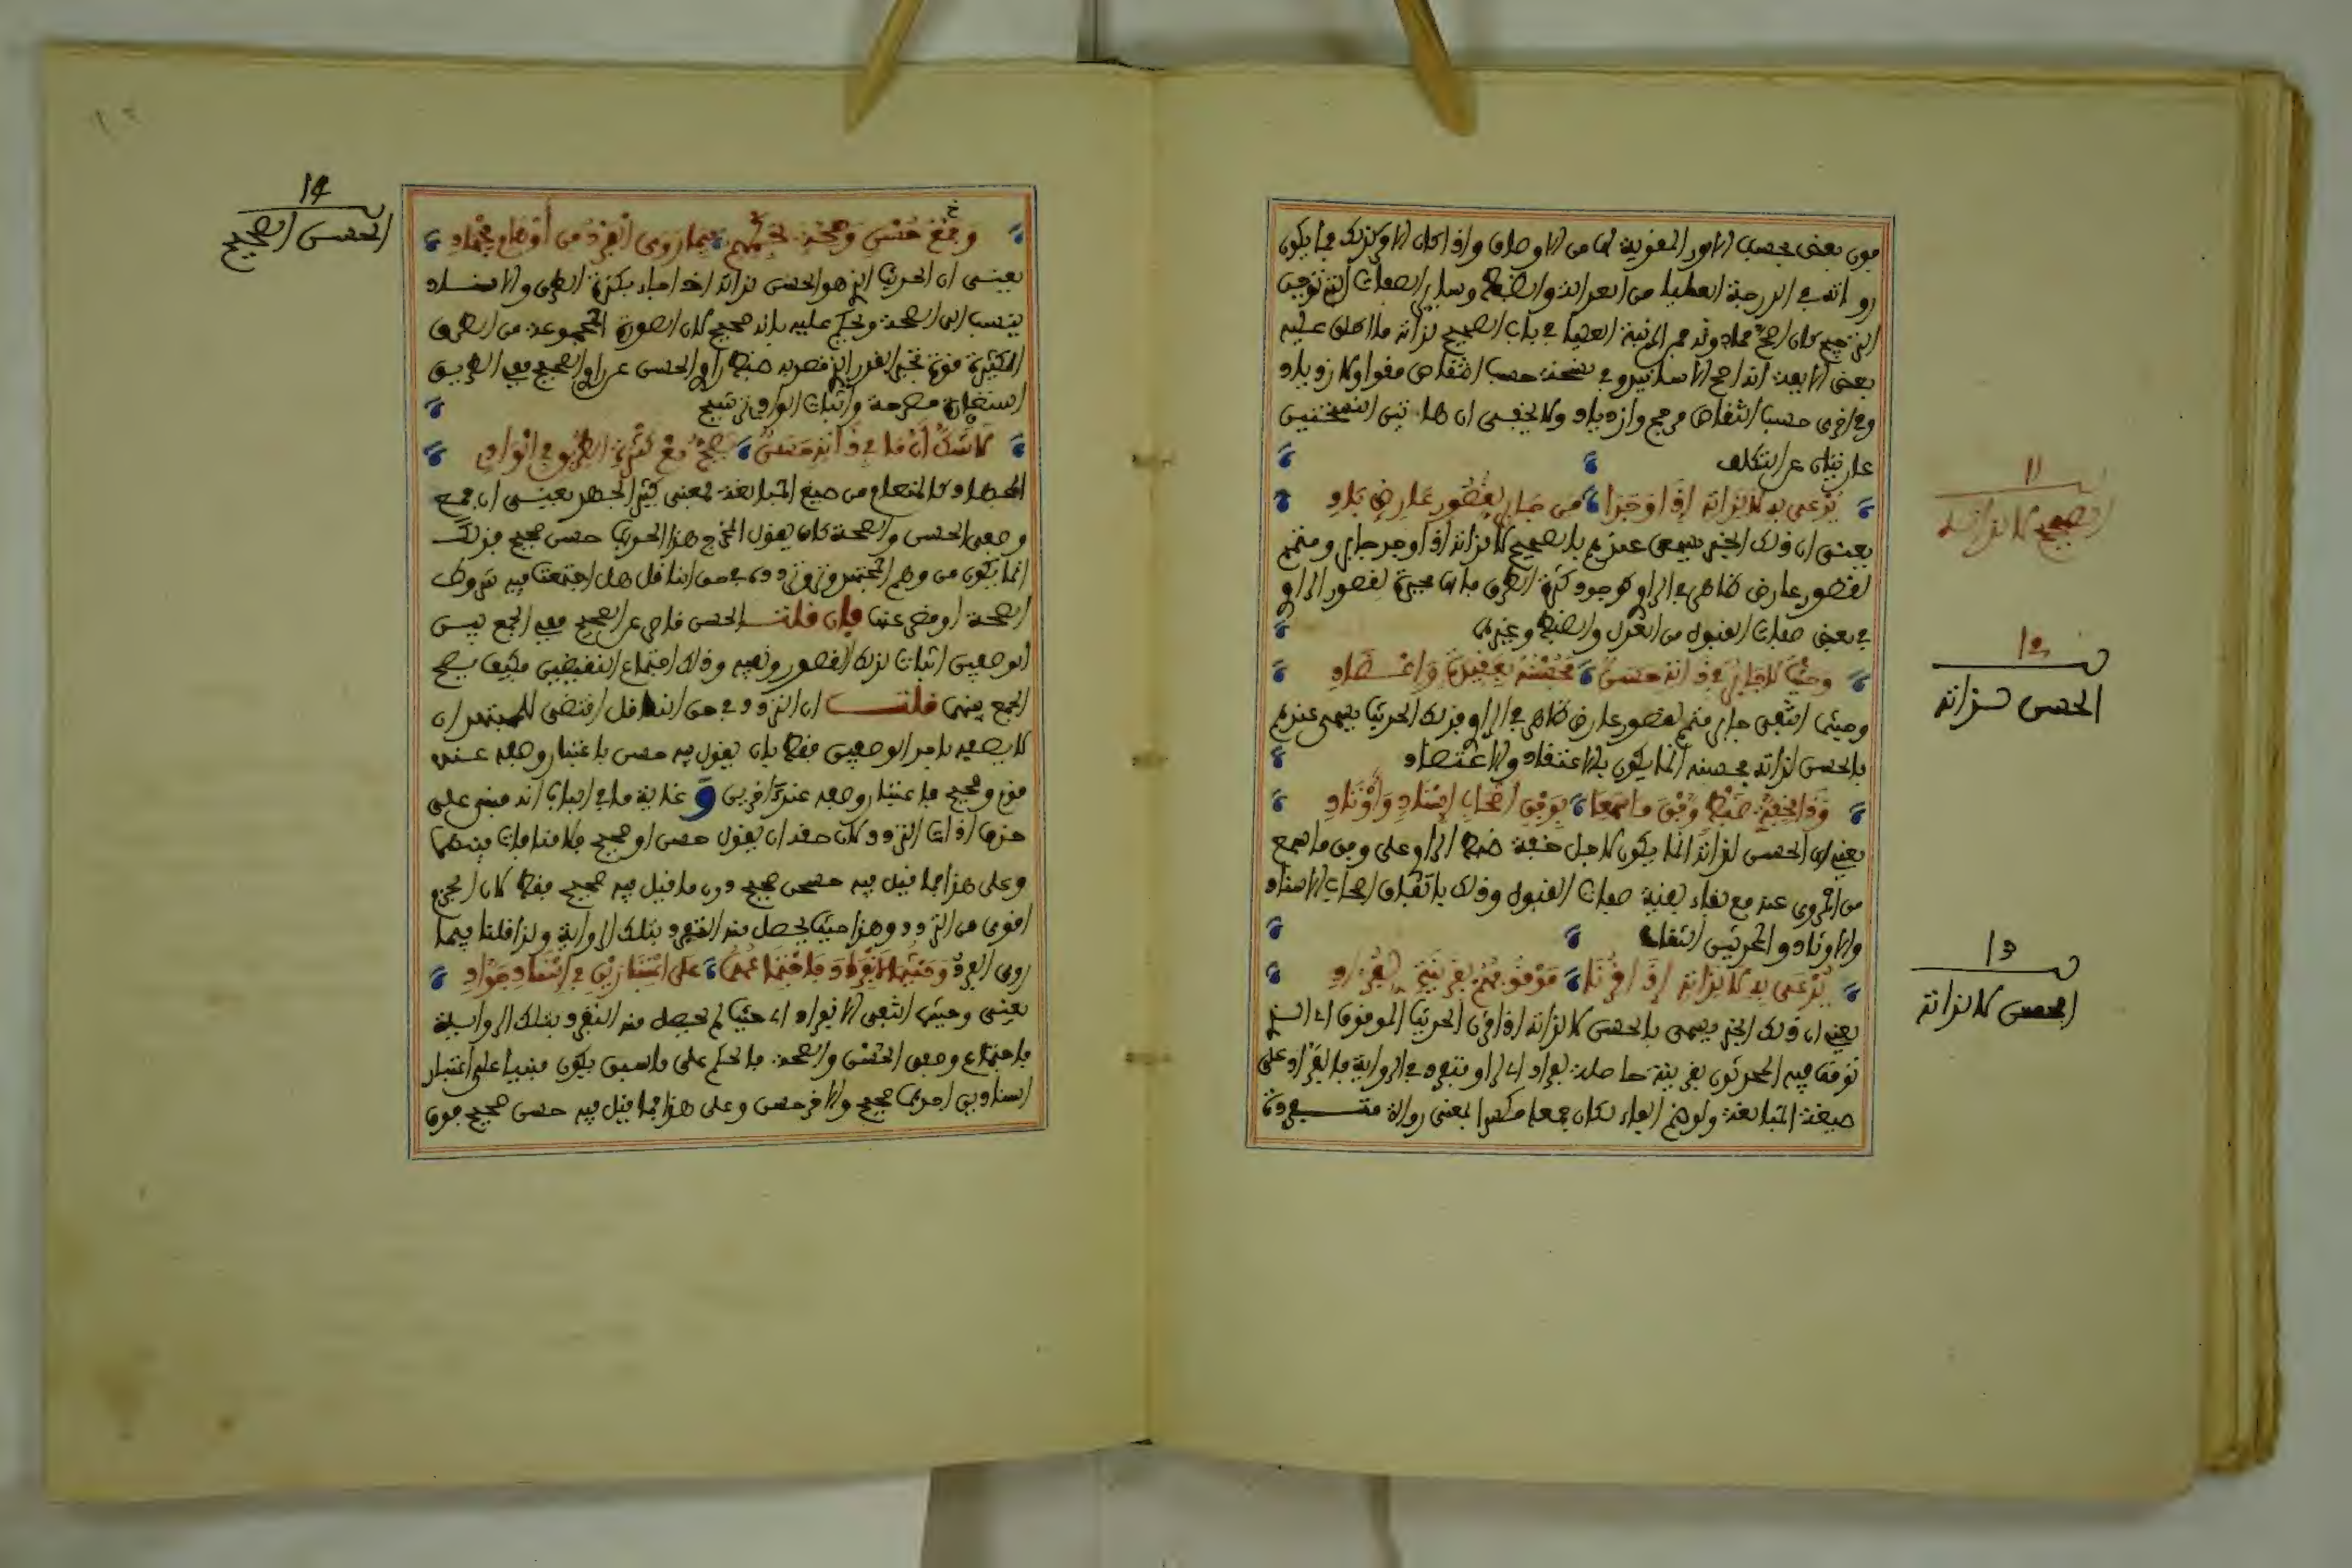 فوق بعض بحسب الامور المقوية لها من الاوصاف واذا كان الامر كذلك فما يكون
رواته في الدرجة العليا من العدالة والضبط وسائر الصفات التي توجب
الترجيح كان اصح مما دونه فمن المرتبة العليا في باب الصحيح لذاته ما اطلق عليه
بعض الايمة انه اصح الاسانيد وفي نسخة حسب انتقاص
وفي اخرى حسب انتقاص مرجح وازدياد ولا يخفى ان هاتين النسختين
عاريتان عن التكلف
يدعى به لا لذاته اذا وجدا من جابر لقصور عارض باد
يعني ان ذلك الخبر يسمى عندهم بالصحيح لا لذاته اذا وجد جابر ومتمم
لقصور عارض ظاهر في الراوي كوجود كثرة الطرق فانها مجبرة لقصور الراوي
في بعض صفات القبول من العدل والضبط وغيره
وحيث لا جابر في ذا لذاته حسن فحسنه باعتقاد واعتضاد
وحيثما انتفى جابر متمم لقصور عارض ظاهر في الراوي فذلك الحديث يسمى عندهم
بالحسن لذاته فحسنه انما يكون بالاعتقاد والاعتضاد
وذا لخفة ضبط وفق ما سمعا بوفق اصحاب اسناد واوتاد
يعني ان الحسن لذاته انما يكون لاجل خفة ضبط الراوي على وفق ما سمع
من المروي عنه مع بقاء بقية صفات القبول وذلك باتفاق اصحاب الاسناد
والاوتاد والمحدثين الثقات
يدعى به لا لذاته اذا اقترنا موقوفهم بقرينة
يعني ان ذلك الخبر يسمى بالحسن لا لذاته اذا اقترن الحديث الموقوف اي الذي
توقف فيه المحدثون بقرينة حاصلة بفراد اي راو متفرد في الرواية فالفراد على
صيغة المبالغة ولو ضم الفاء لكان جمعا مكسرا لمعنى رواة متفردة
11
الصحيح لا لذاته
12
الحسن لذاته
13
الحسن لا لذاته
وجمع حسن وصحة فيما روى الفرد من اوهام
يعني ان الحديث الذي هو الحسن لذاته اذا جاء بكثرة الطرق والاسناد
ينسب الى الصحة ويحكم عليه بانه صحيح لان الصورة المجموعة من الطرق
الكثيرة قوة تجبر القدر الذي قصر به ضبط راوي الحسن عن راوي الصحيح ففي الطريق
استعارة مصرحة واثبات الوادي ترشيح
لا شك ان ما في ذا لذاته حسن يصح مع كثرة الطرق في الوادي
المجهاد كالمنعام من صيغ المبالغة بمعنى كثير الجهد يعني ان جمع
وصفي الحسن والصحة كان يقول المخرج هذا الحديث حسن صحيح فذلك
انما يكون من وهم المجتهد وتردده في حق الناقل هل اجتمعت فيه شروط
الصحة او قصر عنها فان قلت الحسن قاصر عن الصحيح ففي الجمع بين
الوصفين اثبات لذلك القصور ونفيه وذلك اجتماع النقيضين فكيف يصح
الجمع بينهما قلت ان التردد في حق الناقل اقتضى للمجتهد ان
لا يصفه باحد الوصفين فقط بان يقول فيه حسن باعتبار وصفه عند
قوم وصحيح باعتبار وصفه عند اخرين و غاية ما في الباب انه مبني على
حذف اداة التردد لان حقه ان يقول حسن او صحيح فلا منافاة بينهما
وعلى هذا فما قيل فيه حسن صحيح دون ما قيل فيه صحيح فقط لان الجزم
اقوى من التردد وهذا حيث يحصل منه التفرد بتلك الرواية ولذا قلنا فيما
روى الفرد وحيثما الانفراد فاجتماعهما على اعتبارين في اسناد جواد
يعني وحيثما انتفى الانفراد اي حيث لم يحصل منه التفرد بتلك الرواية
فاجتماع وصفي الحسن والصحة فالحكم على ما سبق يكون مبنيا على اعتبار
اسنادين احدهما صحيح والاخر حسن وعلى هذا فما قيل فيه حسن صحيح فوق
14
الحسن الصحيح